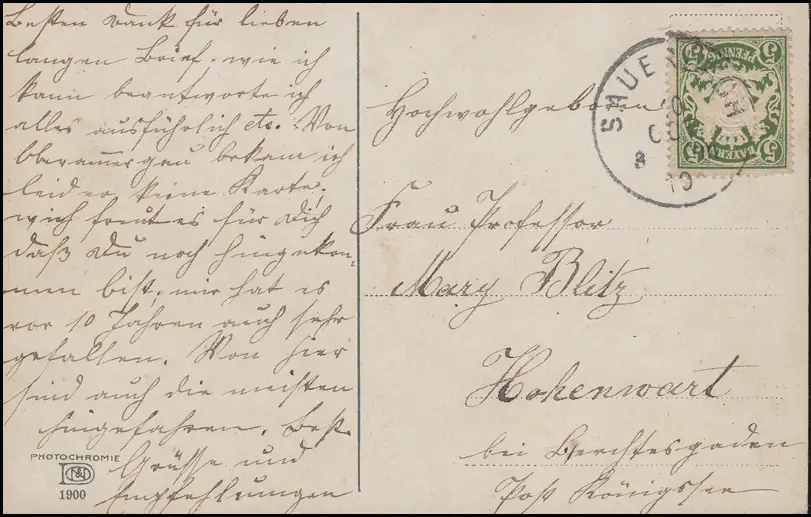 Besten Dank für lieben
langen Brief. wie ich
kann beantworte ich
alles ausführlich etc. Von
Oberammergau bekam ich
leider keine Karte,
mich freut es für Dich
daß Du noch hingekom-
men bist, mir hat es
vor 10 Jahren auch sehr
gefallen. Von hier
sind auch die meisten
hingefahren. Best.
Grüsse und
Empfehlungen
PHOTOCHROMIE
1900
Hochwohlgeboren
Frau Professor
Mary Blitz
Hohenwart
bei Berchtesgaden
Post Königssee
SAUE
10
BAYERN
5 PFENNIG 5